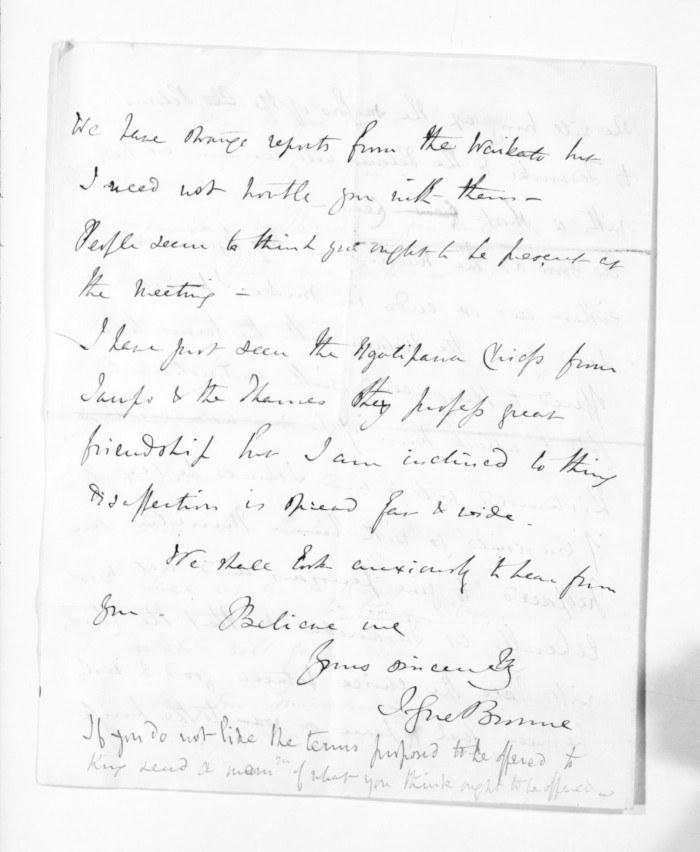 We have strange reports from the Waikato but
I need not trouble you with them -
People seem to think you ought to be present at
the meeting -
I have just seen the Ngatipaoa Chiefs from
Taupo & the Thames They profess great
friendship but I am inclined to think
disaffection is spread far & wide.
We shall look anxiously to hear from
you Believe me
Yours sincerely
T Gore Browne
If you do not like the terms proposed to be offered to
King send a memm of what you think ought to be offered -